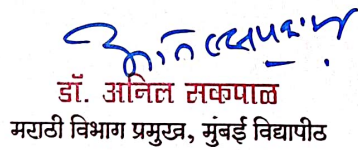 डॉ. अनिल सकपाळ
मराठी विभाग प्रमुख, मुंबई विद्यापीठ